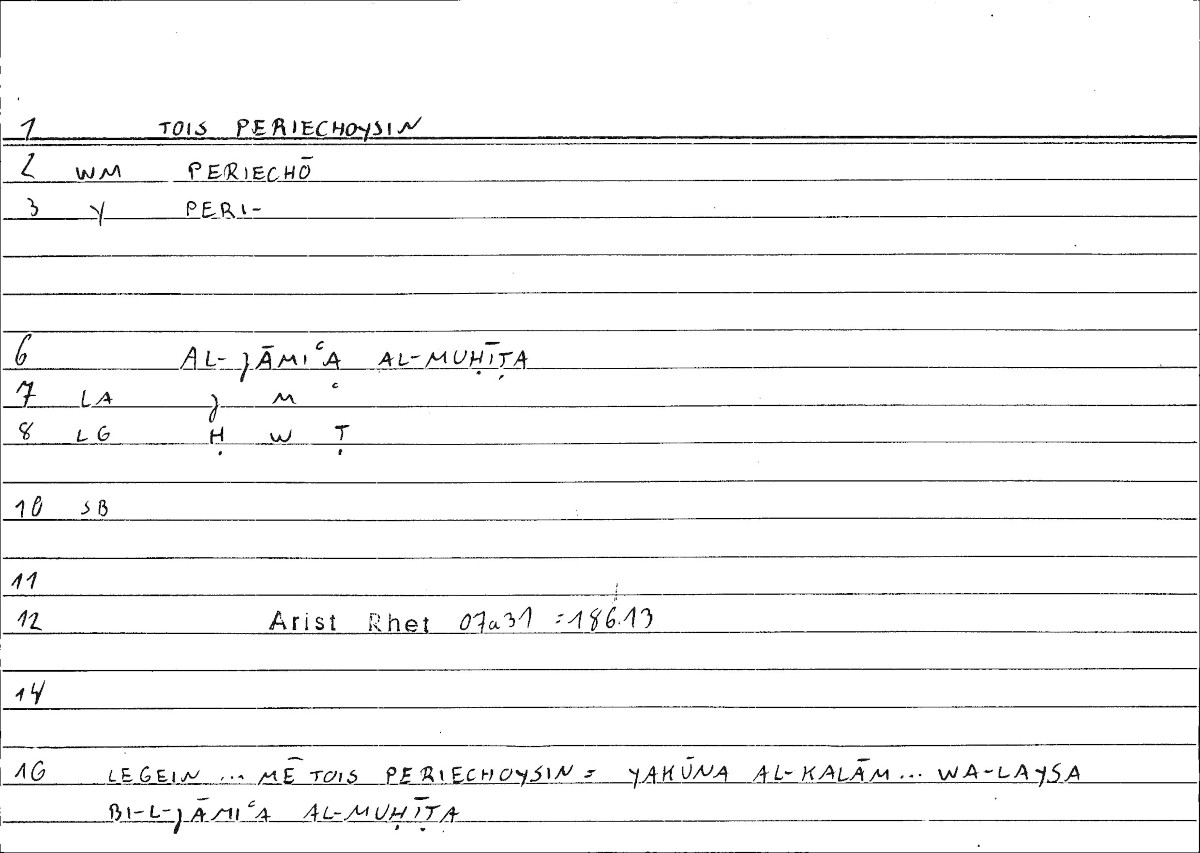 1 TOIS PERIECHOYSIN
2 WM PERIECHŌ
3 Y PERI-
6 AL-JĀMIʿA AL-MUḤĪṬA
7 LA J M ʿ
8 LG Ḥ W Ṭ
10 SB
11
12 Arist Rhet 07a31 =186.13
14
16 LEGEIN ... MĒ TOIS PERIECHOYSIN = YAKŪNA AL-KALĀM... WA-LAYSA
BI-L-JĀMIʿA AL-MUḤĪṬA